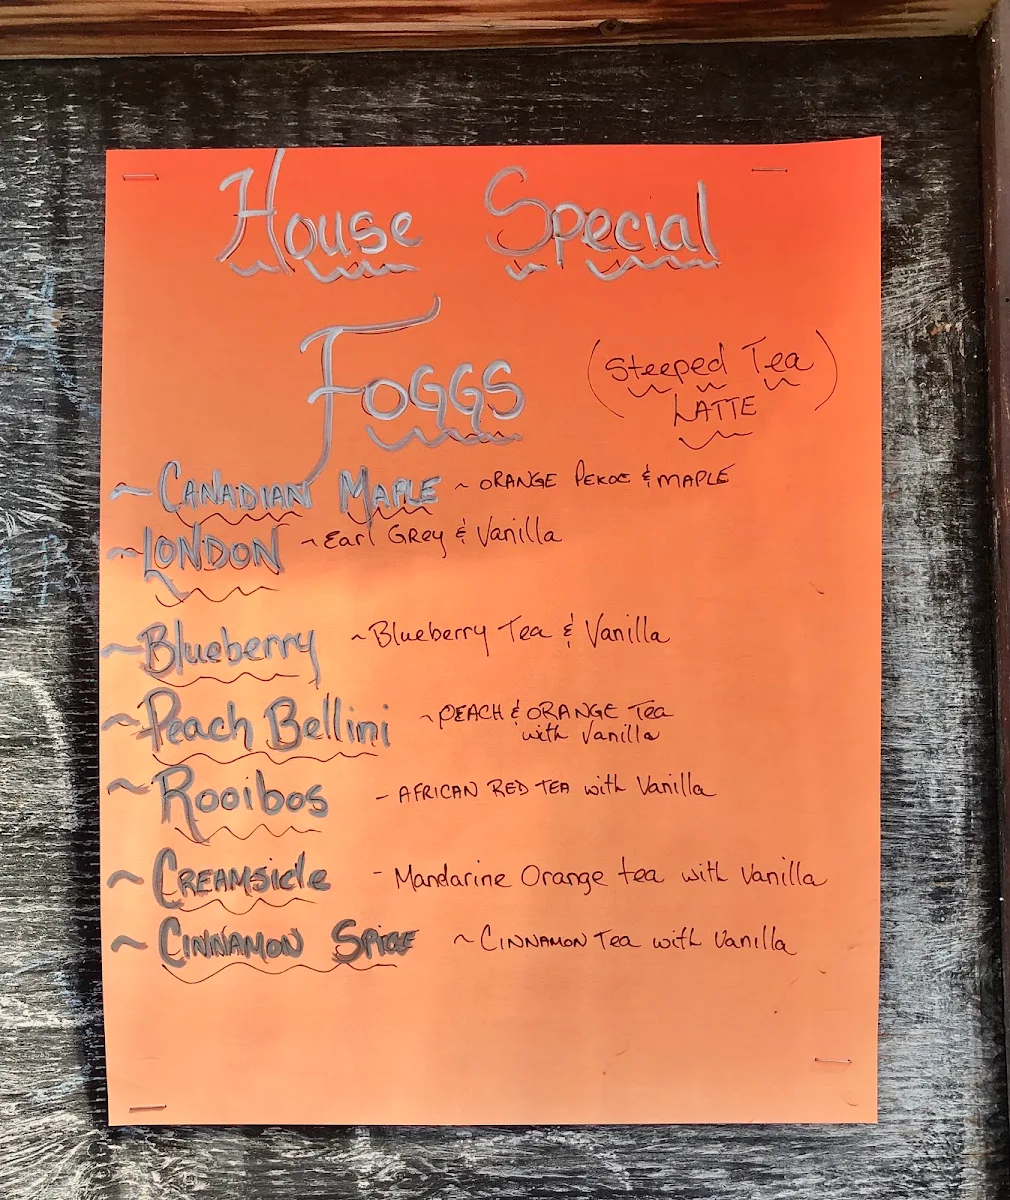 House Special
Foggs (Steeped Tea
LATTE)
~ CANADIAN MAPLE ~ ORANGE PEKOE & MAPLE
~ LONDON ~ Earl Grey & Vanilla
~ Blueberry ~ Blueberry Tea & Vanilla
~ Peach Bellini ~ PEACH & ORANGE Tea
with Vanilla
~ Rooibos - AFRICAN RED TEA with Vanilla
~ CREAMSicle - Mandarine Orange tea with Vanilla
~ CINNAMON SPICE ~ CINNAMON Tea with Vanilla